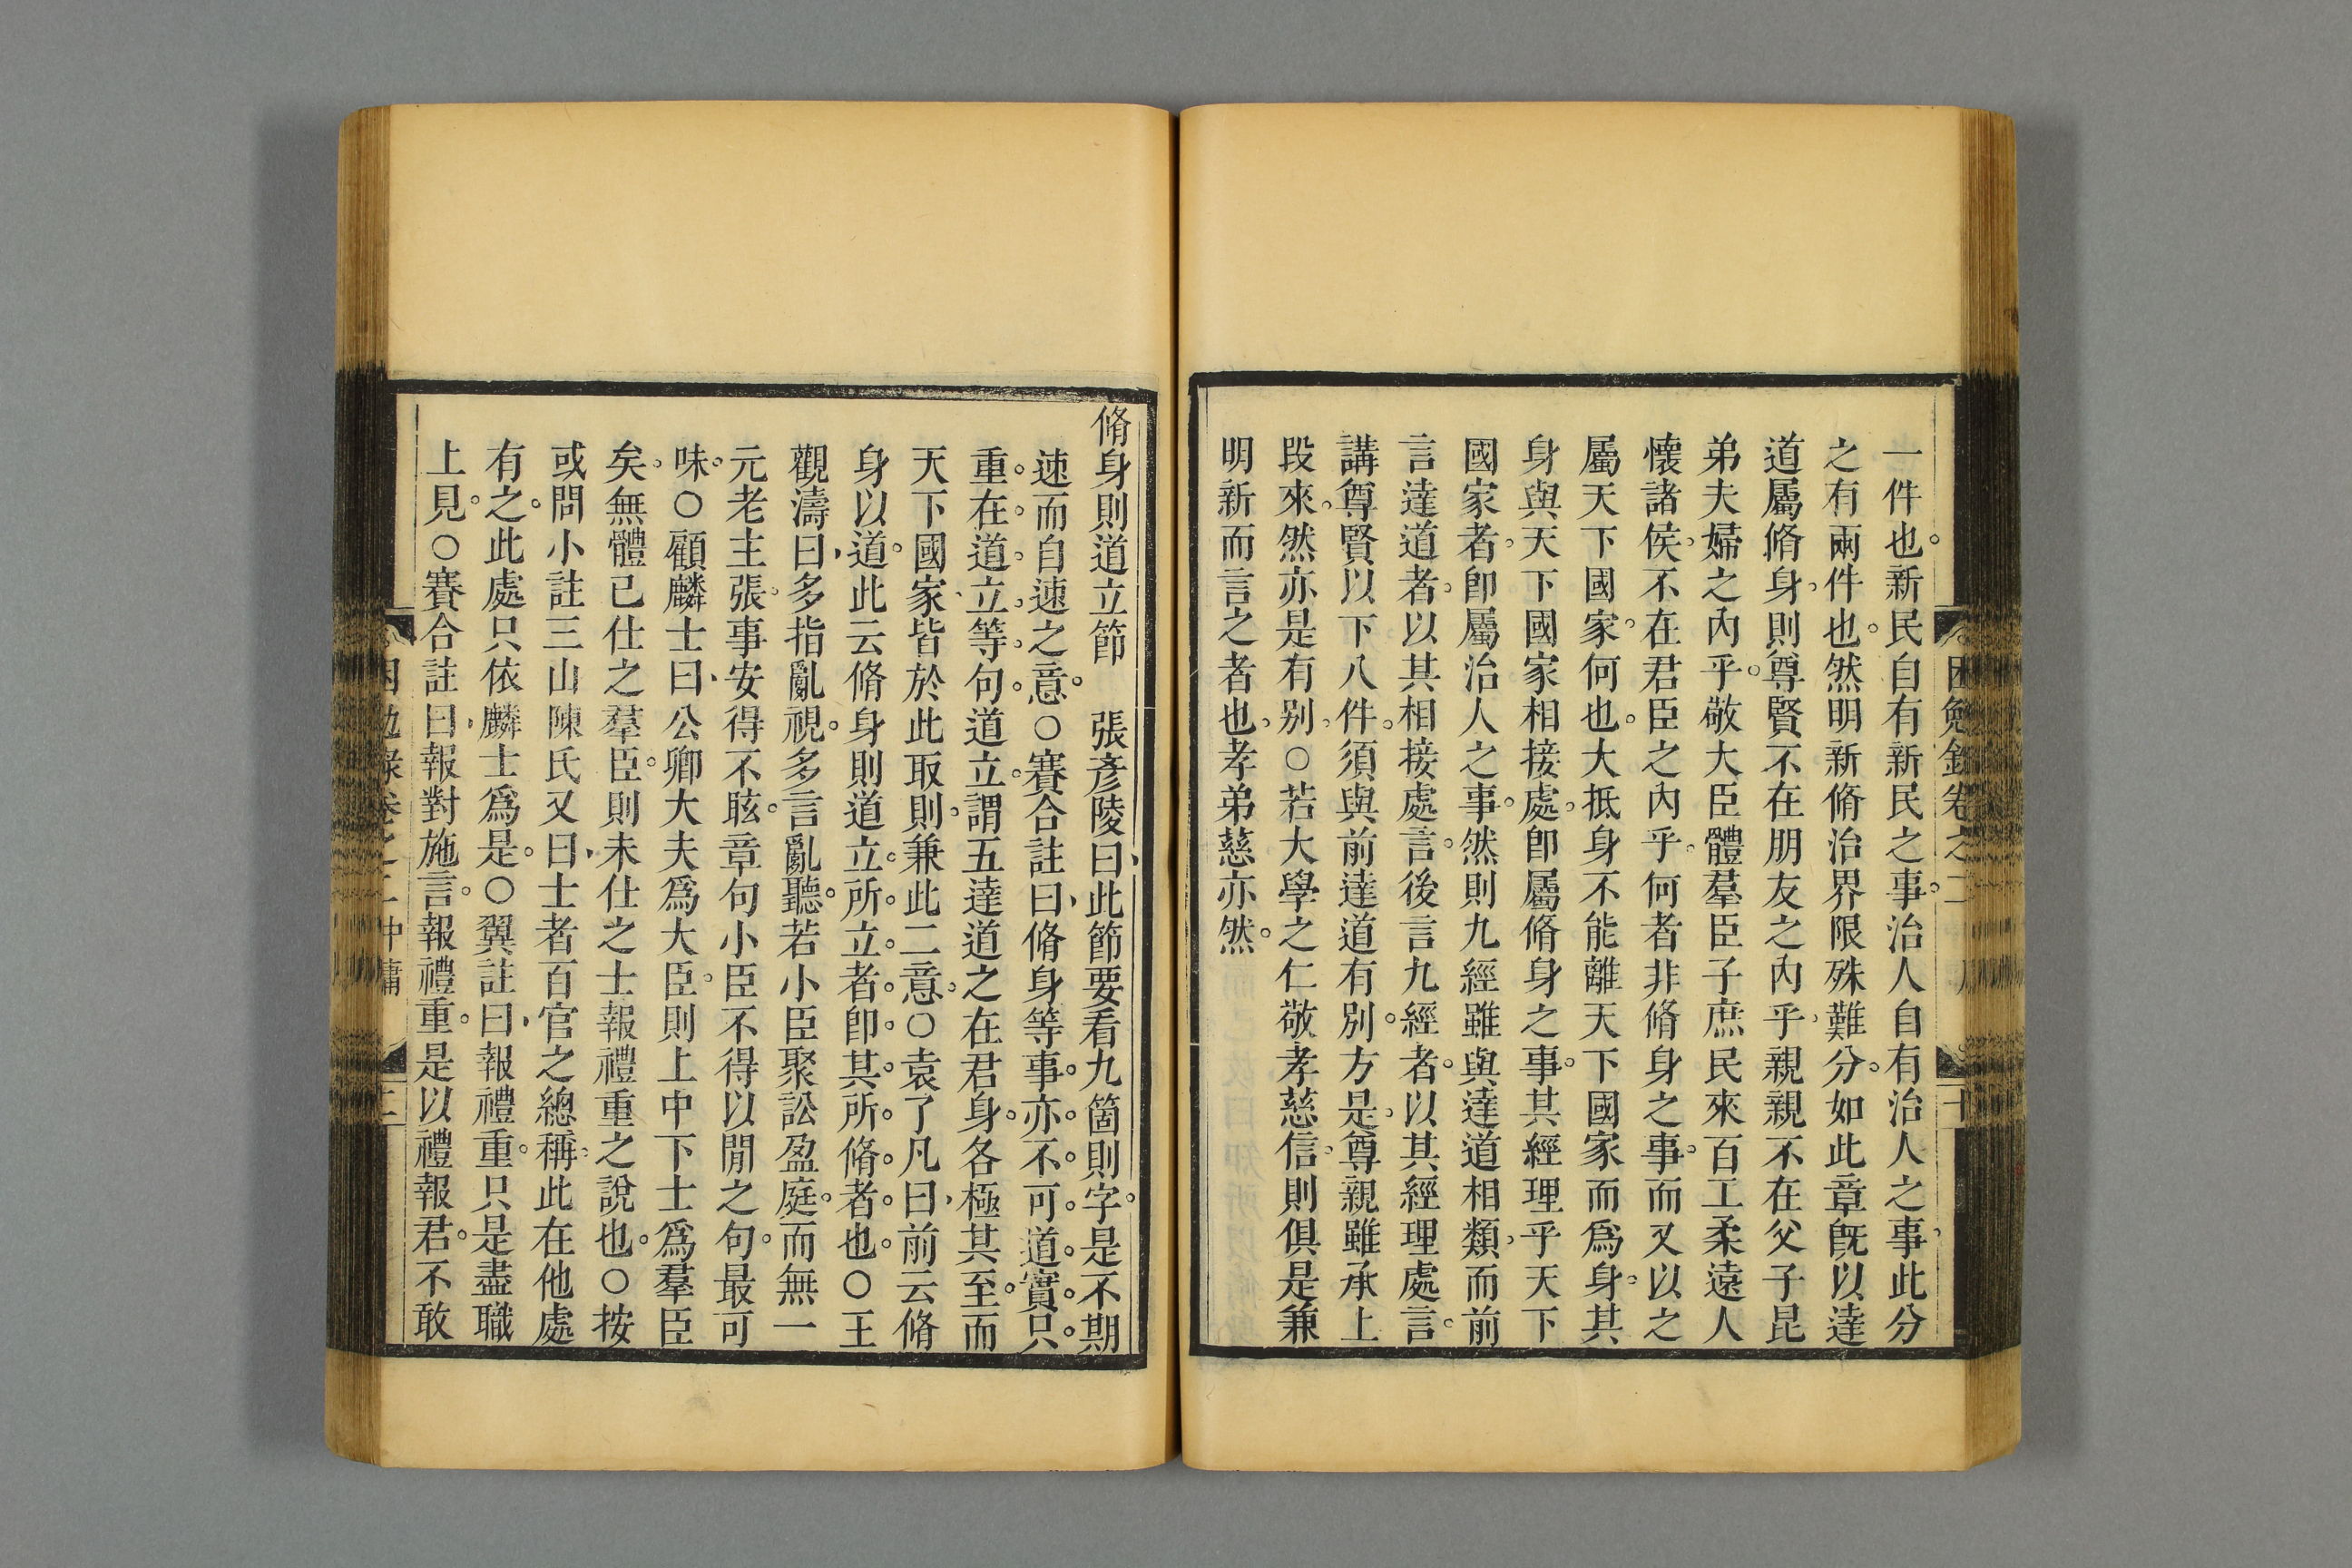 一件也。新民自有新民之事。治人自有治人之事、此分
之有兩件也。然明新脩治界限殊難分。如此章旣以達
道屬脩身、則尊賢不在朋友之內乎、親親不在父子昆
弟夫婦之內乎。敬大臣體羣臣子庶民來百工柔遠人
懷諸侯、不在君臣之內乎、何者非脩身之事。而又以之
屬天下國家。何也。大抵身不能離天下國家而爲身。其
身與天下國家相接處。卽屬脩身之事。其經理乎天下
國家者、卽屬治人之事。然則九經雖與達道相類、而前
言達道者、以其相接處言。後言九經者。以其經理處言。
講尊賢以下八件。須與前達道有別。方是、尊親雖承上
段來、然亦是有别、○若大學之仁敬孝慈信、則俱是兼
明新而言之者也、孝弟慈亦然。
脩身則道立節　張彥陵曰、此節要看九箇則字。是不期
速而自速之意。○賽合註曰、脩身等事。亦。不。可。道。實。只。
重。在。道。立。等。句。道立。謂五達道之在君身。各極其至。而
天下國家、皆於此取則、兼此二意、○袁了凡曰、前云脩
身以道。此云脩身則道立。所。立。者。卽。其。所。脩。者。也。○王
觀濤曰、多指亂視。多言亂聽。若小臣聚訟盈庭。而無一
元老主張、事安得不眩。章句小臣不得以間之句。最可
味。○顧麟士曰、公卿大夫爲大臣。則上中下士爲羣臣
矣。無體已仕之羣臣。則未仕之士報禮重之說也。○按
或問小註三山陳氏又曰、士者百官之總稱、此在他處
有之。此處只依麟士爲是。○翼註曰、報禮重。只是盡職
上見。○賽合註曰、報對施言。報禮重。是以禮報君。不敢
困勉錄卷之二
困勉錄卷之二 中庸